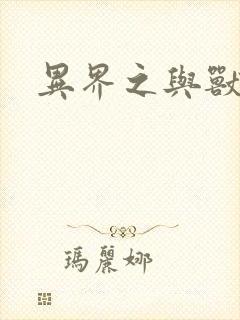 異界之與獸
瑪麗娜